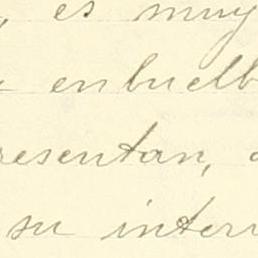 , es muy
enbuelb
resentan,
su inter